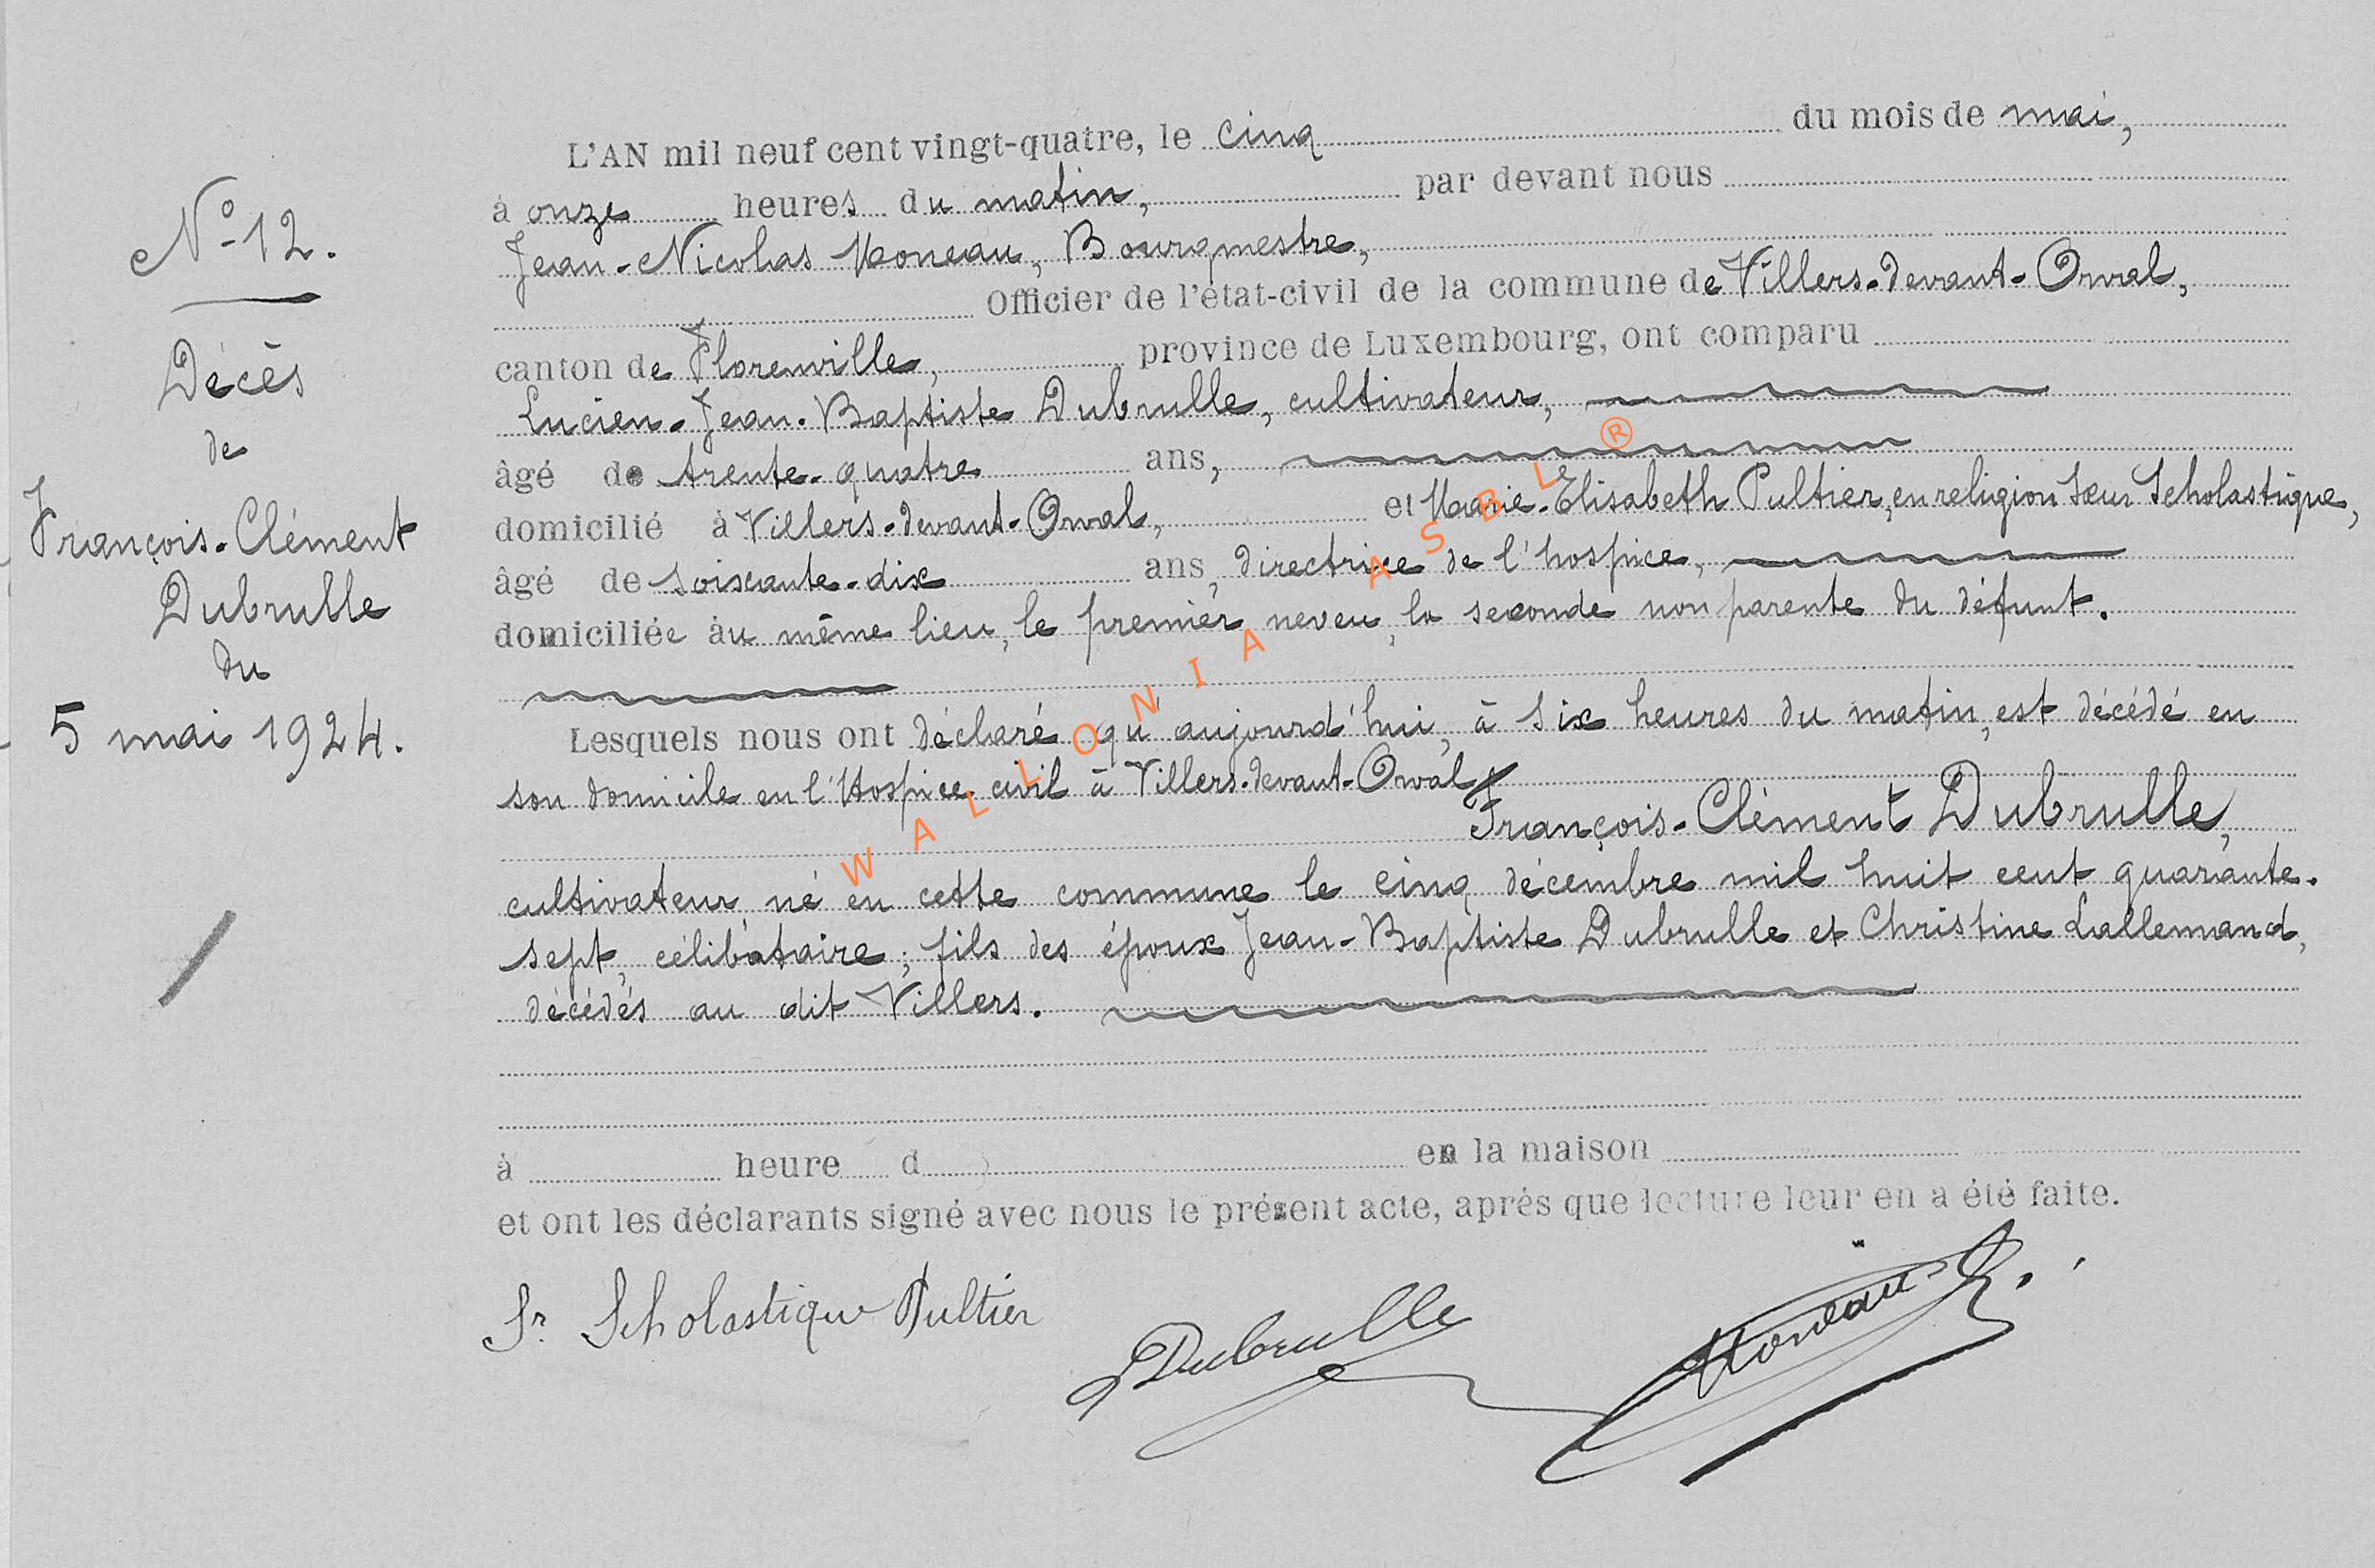 N° 12.
Décès
de
François-Clément
Dubrulle
du
5 mai 1924.
L'AN mil neuf cent vingt-quatre, le cinq du mois de mai,
à onze heures du matin, par devant nous
Jean-Nicolas Moneau, Bourgmestre,
Officier de l'état-civil de la commune de Villers-devant-Orval,
canton de Florenville, province de Luxembourg, ont comparu
Lucien-Jean-Baptiste Dubrulle, cultivateur,
âgé de trente-quatre ans,
domicilié à Villers-devant-Orval, et Marie-Elisabeth Pultier, en religion Sœur Scholastique,
âgé de soixante-dix ans, directrice de l'hospice,
domiciliée au même lieu, le premier neveu, la seconde non parente du défunt.
Lesquels nous ont déclaré qu'aujourd'hui, à six heures du matin, est décédé en
son domicile en l'Hospice civil à Villers-devant-Orval
François-Clément Dubrulle,
cultivateur, né en cette commune le cinq décembre mil huit cent quarante-
sept, célibataire; fils des époux Jean-Baptiste Dubrulle et Christine Lallemand,
décédés au dit Villers.
à heure d en la maison
et ont les déclarants signé avec nous le présent acte, après que lecture leur en a été faite.
Sr Scholastique Pultier
LDubrulle
Moneau
WALLONIA ASBL ®